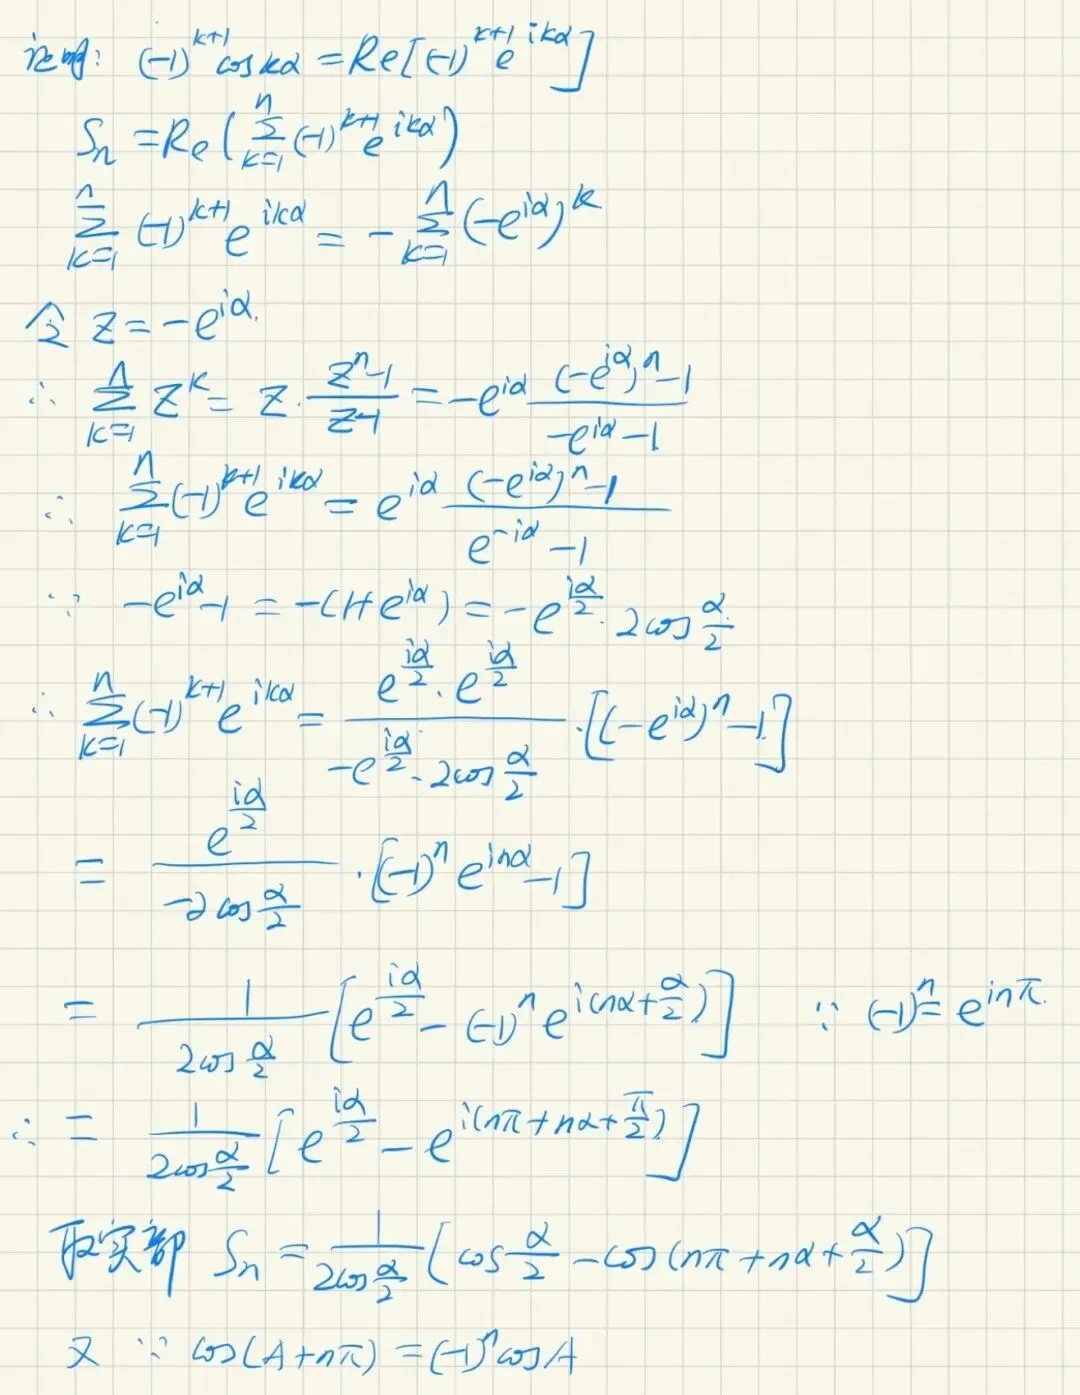 证明: (-1)^{k+1} cos kα = Re[(-1)^{k+1} e^{ikα}]
S_n = Re(∑_{k=1}^{n} (-1)^{k+1} e^{ikα})
∑_{k=1}^{n} (-1)^{k+1} e^{ikα} = -∑_{k=1}^{n} (-e^{iα})^k
令 z = -e^{iα}.
∴ ∑_{k=1}^{n} z^k = z · \frac{z^n-1}{z-1} = -e^{iα} \frac{(-e^{iα})^n-1}{-e^{iα}-1}
∴ ∑_{k=1}^{n} (-1)^{k+1} e^{ikα} = e^{iα} \frac{(-e^{iα})^n-1}{e^{-iα}-1}
∵ -e^{iα}-1 = -(1+e^{iα}) = -e^{\frac{iα}{2}} · 2cos\frac{α}{2}
∴ ∑_{k=1}^{n} (-1)^{k+1} e^{ikα} = \frac{e^{\frac{iα}{2}} · e^{\frac{iα}{2}}}{-e^{\frac{iα}{2}} · 2cos\frac{α}{2}} · [(-e^{iα})^n-1]
= \frac{e^{\frac{iα}{2}}}{-2cos\frac{α}{2}} · [(-1)^n e^{inα}-1]
= \frac{1}{2cos\frac{α}{2}} [e^{\frac{iα}{2}} - (-1)^n e^{i(nα+\frac{α}{2})}] ∵ (-1)^n = e^{inπ}.
∴ = \frac{1}{2cos\frac{α}{2}} [e^{\frac{iα}{2}} - e^{i(nπ+nα+\frac{π}{2})}]
取实部 S_n = \frac{1}{2cos\frac{α}{2}} [cos\frac{α}{2} - cos(nπ+nα+\frac{α}{2})]
又 ∵ cos(A+nπ) = (-1)^n cosA